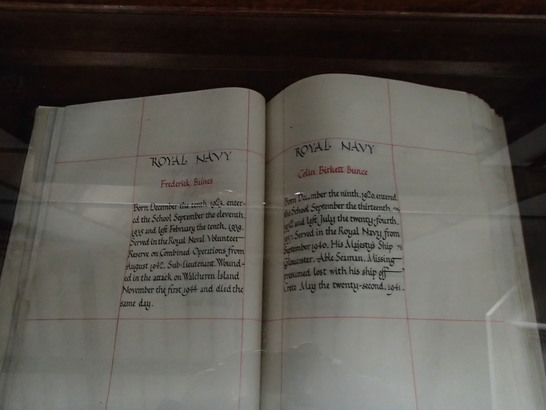 ROYAL NAVY
Frederick
Born December the tenth, enter-
ed the School September the eleventh,
and left February the tenth, 1939.
Served in the Royal Naval Volunteer
Reserve on Combined Operations from
August 1942. Sub-Lieutenant. Wound-
ed in the attack on Walcheren Island
November the first 1944 and died the
same day.
ROYAL NAVY
Colin Birkett Bunce
Born December the ninth, 1920, entered
the School September the thirteenth,
and left July the twenty-fourth,
Served in the Royal Navy from
September 1940. His Majesty's Ship
Gloucester. Able Seaman. Missing
presumed lost with his ship off
Crete May the twenty-second, 1941.